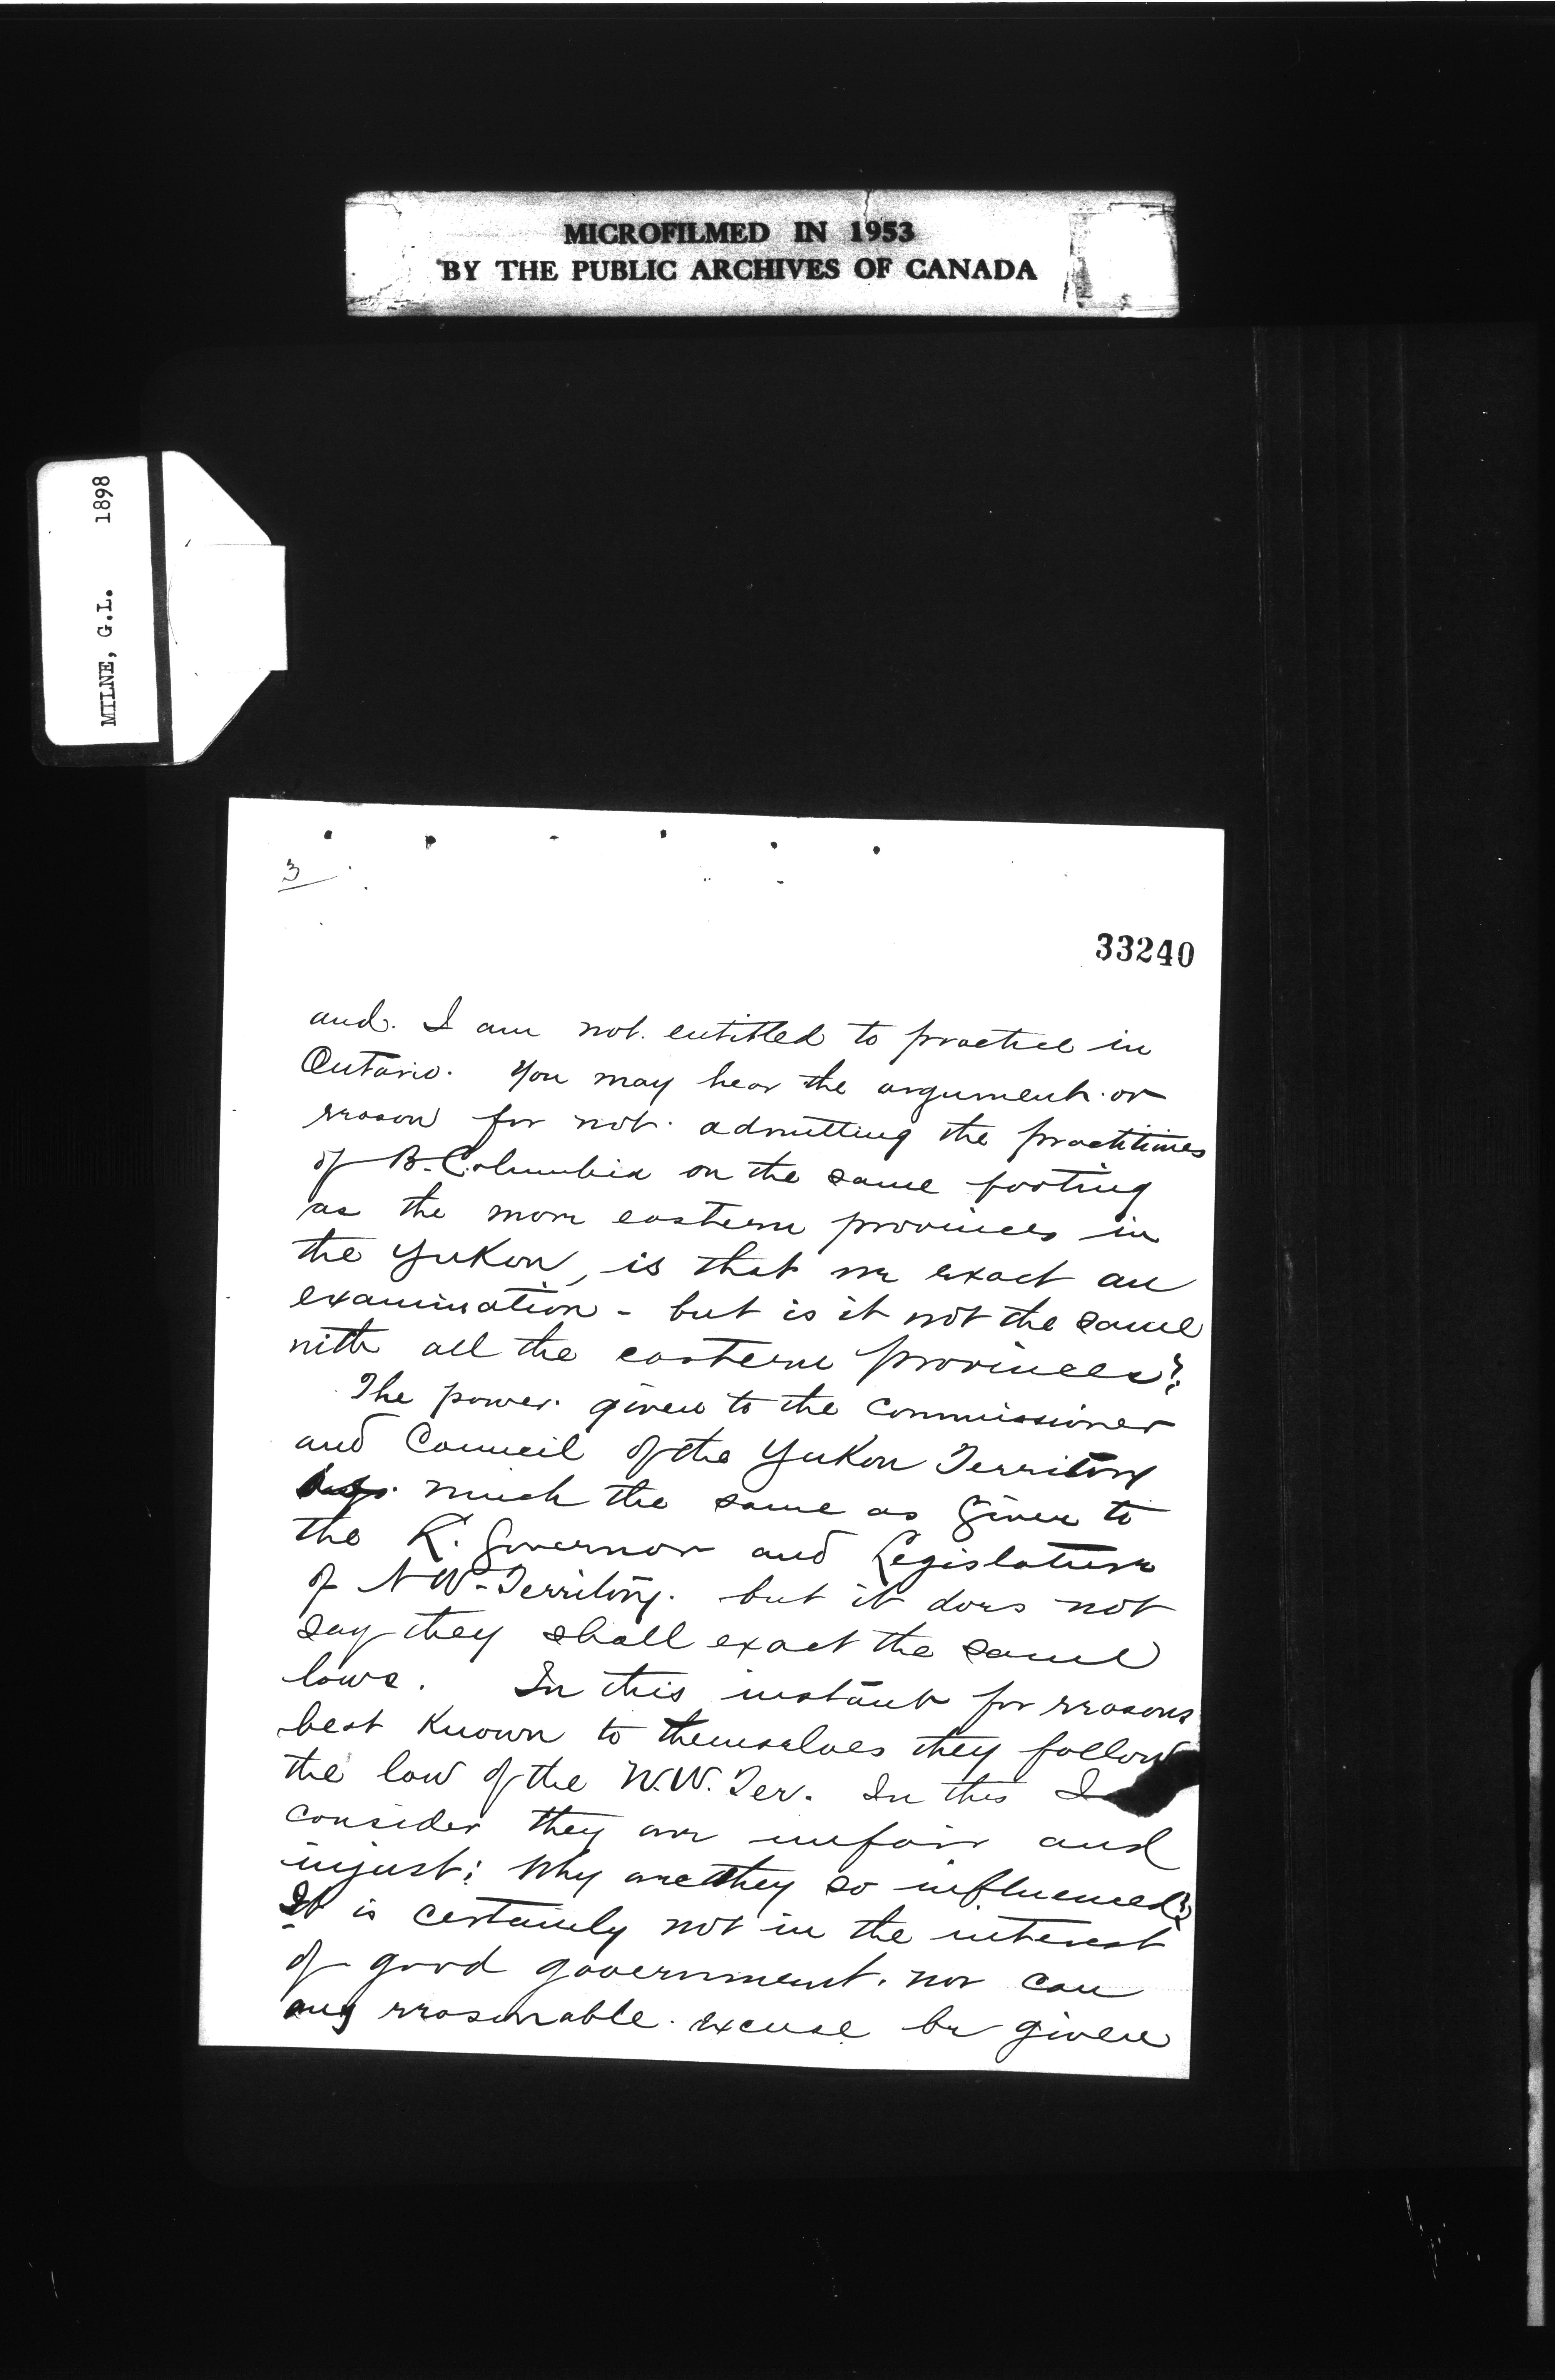 MICROFILMED IN 1953
BY THE PUBLIC ARCHIVES OF CANADA
MILNE, G.L. 1898
3
33240
and. I am not entitled to practice in
Ontario. You may hear the argument or
reason for not admitting the practitines
of B. Columbia on the same footing
as the more eastern provinces in
the Yukon, is that we exact an
examination - but is it not the same
with all the eastern provinces?
The power given to the Commissioner
and Council of the Yukon Territory
much the same as given to
the L. Governor and Legislature
of N W. Territory. but it does not
say they shall exact the same
laws. In this instant for reasons
best known to themselves they follow
the law of the N.W. Ter. In this I
consider they are unfair and
injust; Why are they so influenced?
It is certainly not in the interest
of good government. nor can
any reasonable excuse be given